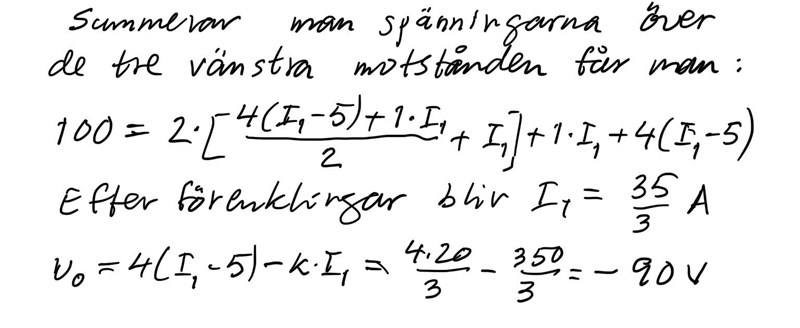 Summerar man spänningarna över
de tre vänstra motstånden får man:
100 = 2·[(4(I₁-5)+1·I₁)/2 + I₁]+1·I₁+4(I₁-5)
Efter förenklingar blir I₁ = 35/3 A
v₀ = 4(I₁-5)-k·I₁ = 4·20/3 - 350/3 = -90 V